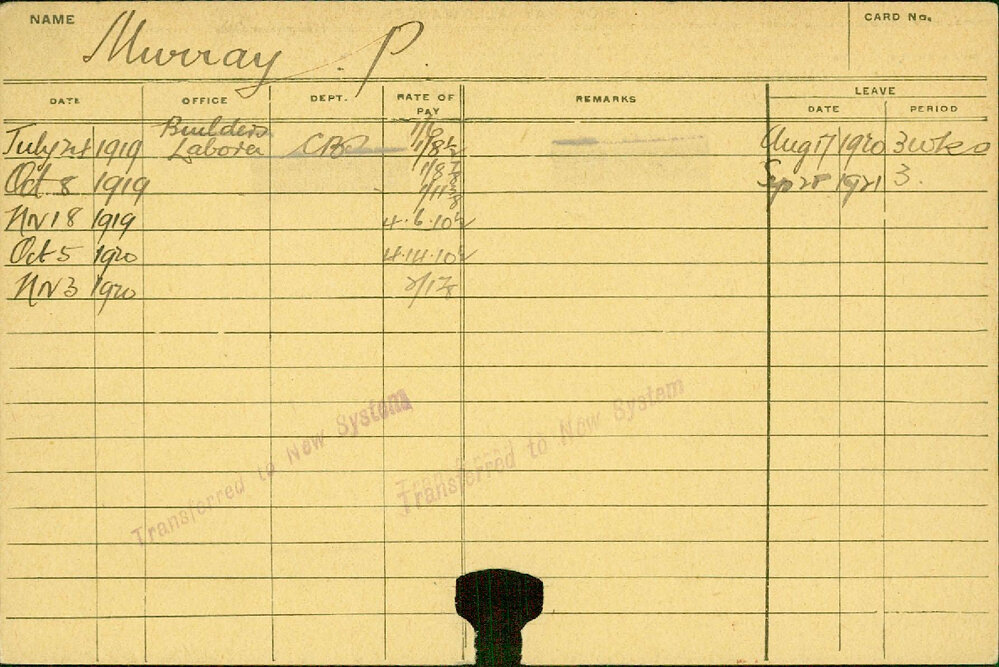 NAME Murray. P. CARD No.
DATE OFFICE DEPT. RATE OF PAY REMARKS LEAVE
DATE PERIOD
Builders 1/6
July 1919 Laborer 1/8½ Aug 17 1920 3 wks
Oct 8 1919 1/8⅞ Sep 28 1921 3.
1/11⅜
Nov 18 1919 4.6.10½
Oct 5 1920 4.14.10½
Nov 3 1920 2/1⅞
Transferred to New System
Transferred to New System